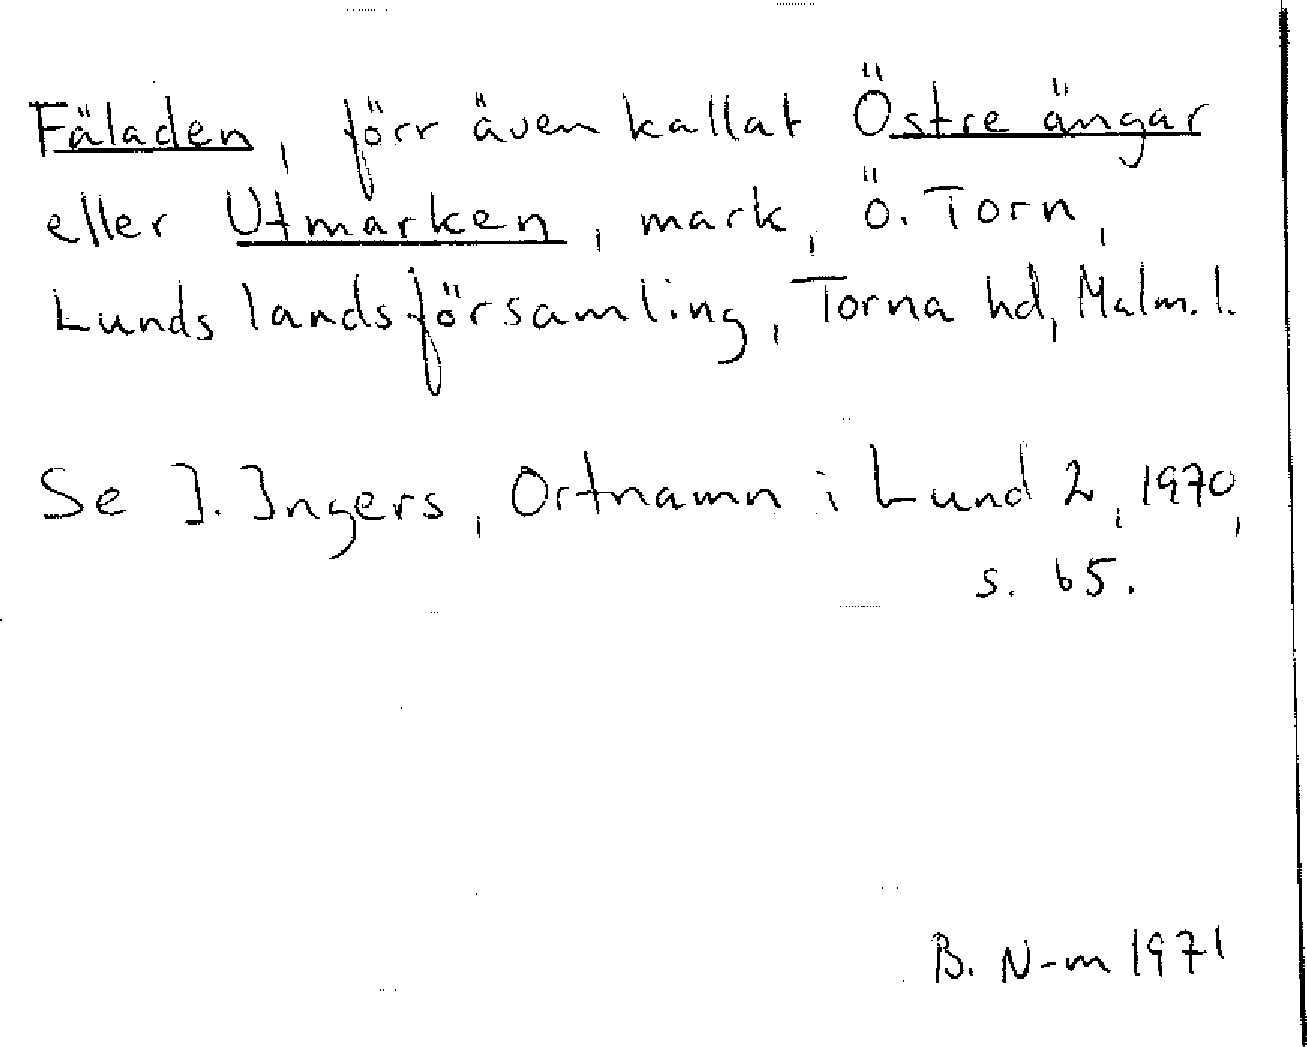 Fäladen, förr även kallat Östre ängar
eller Utmarken, mark, Ö. Torn,
Lunds landsförsamling, Torna hd, Malm. l.
Se I. Ingers, Ortnamn i Lund 2, 1970,
s. 65.
B. N-m 1971